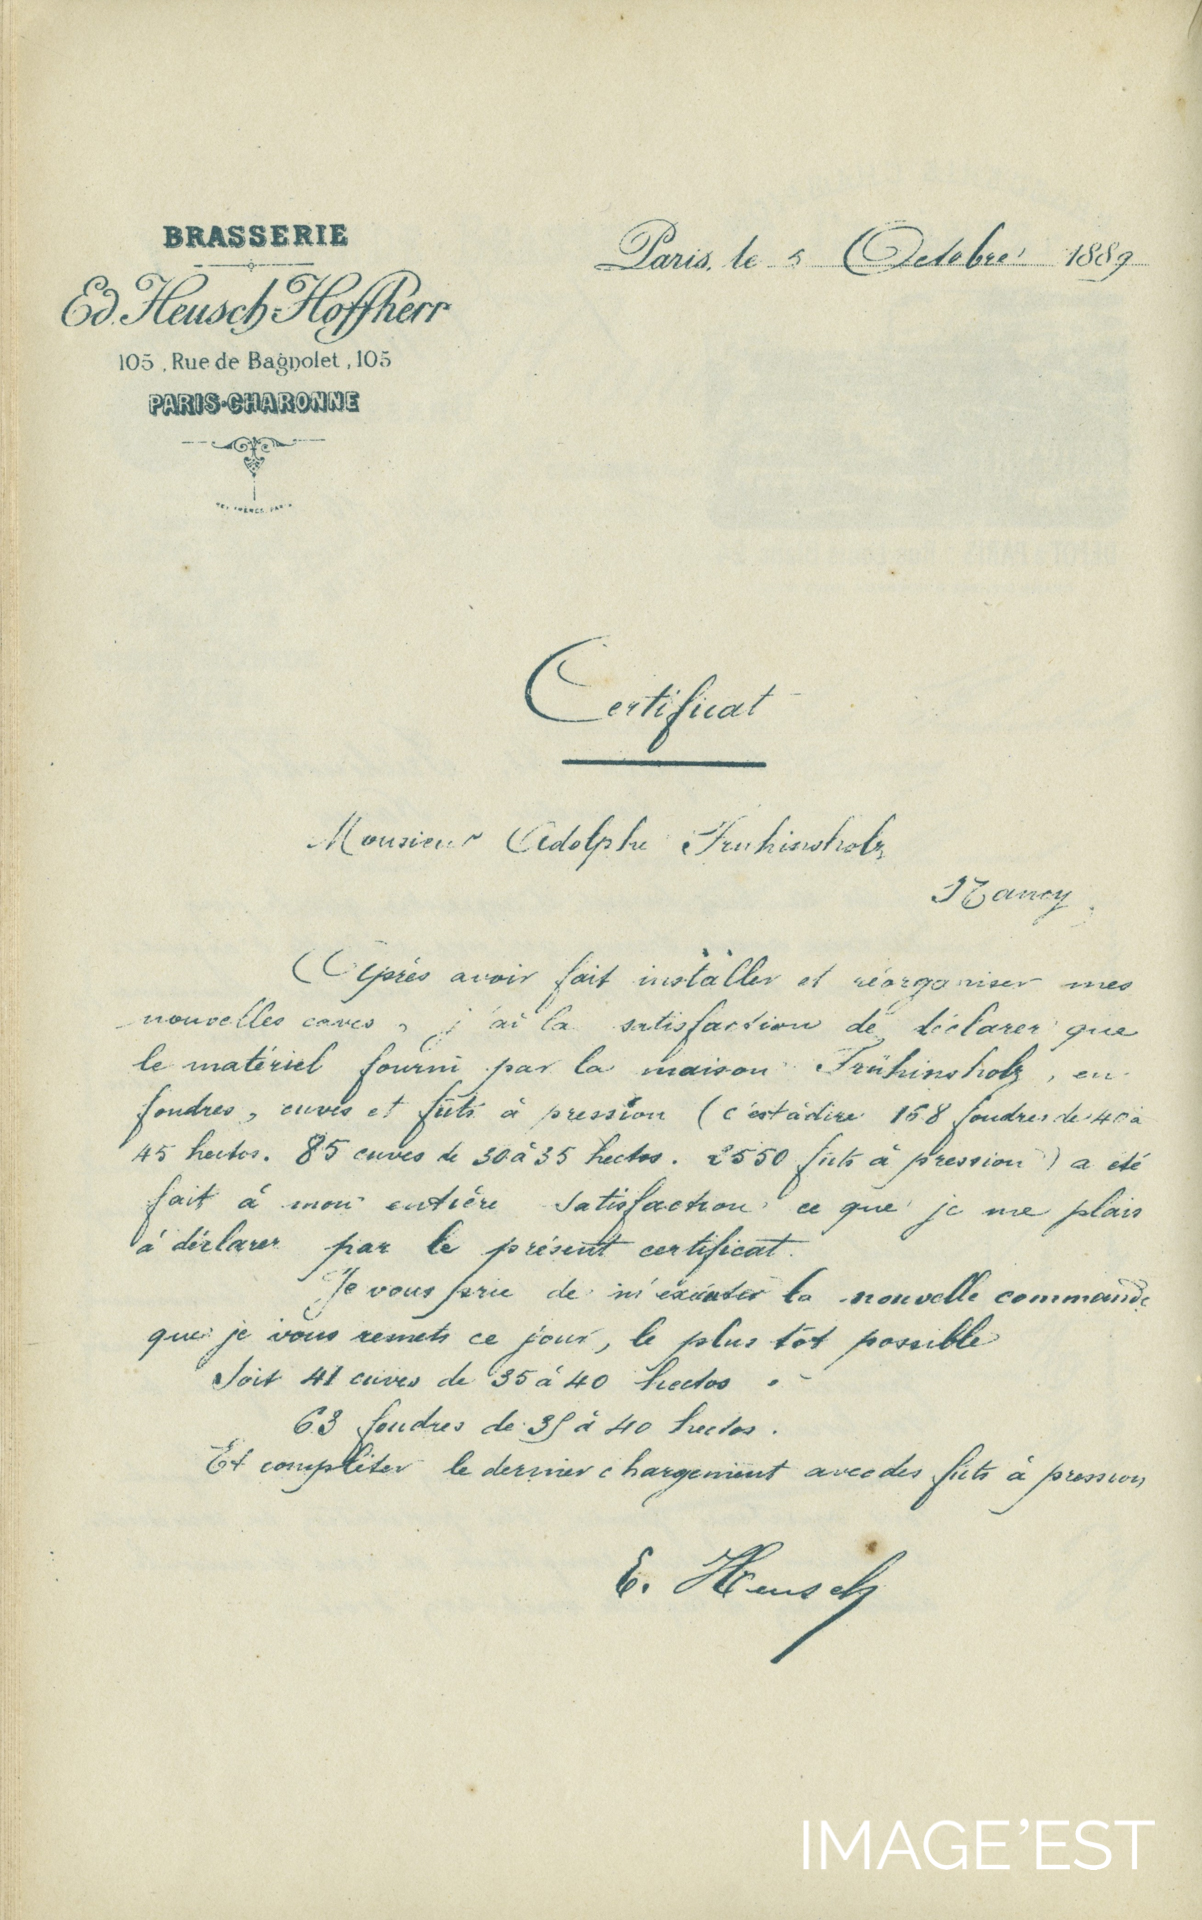 BRASSERIE
Ed. Heusch-Hoffherr
105, Rue de Bagnolet, 105
PARIS-CHARONNE
Paris, le 5 Octobre 1889
Certificat
Monsieur Adolphe Fruhinsholz
Nancy
Après avoir fait installer et réorganiser mes
nouvelles caves, j'ai la satisfaction de déclarer que
le matériel fourni par la maison Frühinsholz, en
foudres, cuves et fûts à pression (c'est à dire 168 foudres de 40 à
45 hectos. 85 cuves de 30 à 35 hectos. 2550 fûts à pression) a été
fait à mon entière satisfaction ce que je me plais
à déclarer par le présent certificat.
Je vous prie de m'exécuter la nouvelle commande
que je vous remets ce jour, le plus tot possible
Soit 41 cuves de 35 à 40 hectos.
63 foudres de 35 à 40 hectos.
Et compléter le dernier chargement avec des fûts à pression
E. Heusch
IMAGE'EST